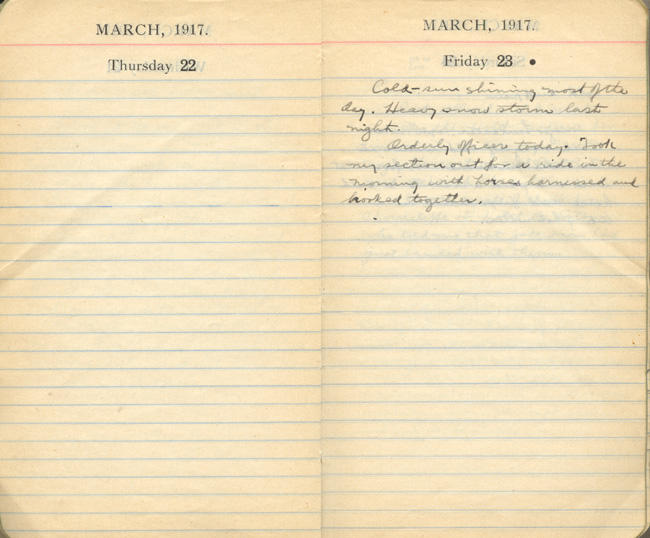 MARCH, 1917.
Thursday 22
MARCH, 1917.
Friday 23 •
Cold - sun shining most of the
day. Heavy snow storm last
night.
Orderly officer today. Took
my section out for a ride in the
morning with horses harnessed and
hooked together.